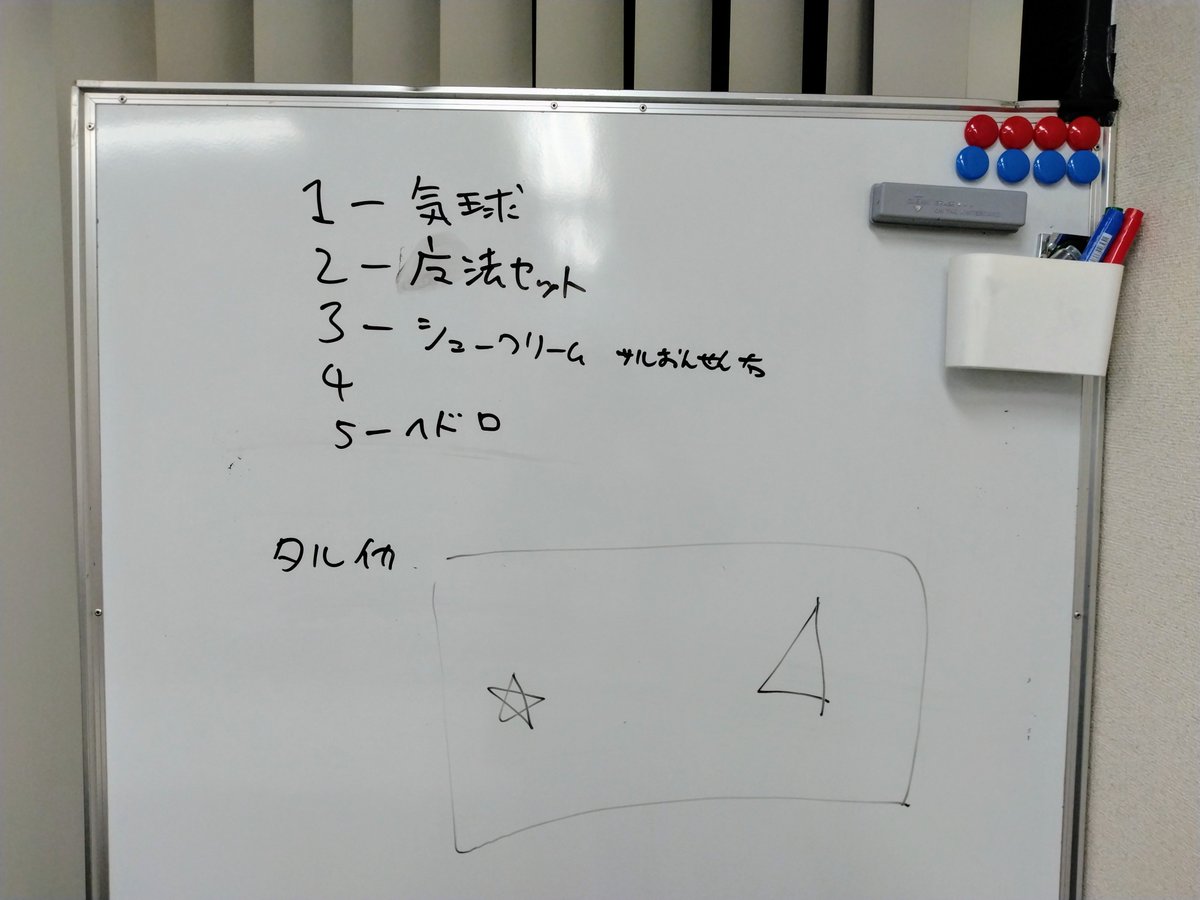 1 ー 気球
2 ー 法セット
3 ー シュークリーム サルおんせん右
4
5 ー ヘドロ
タルイカ